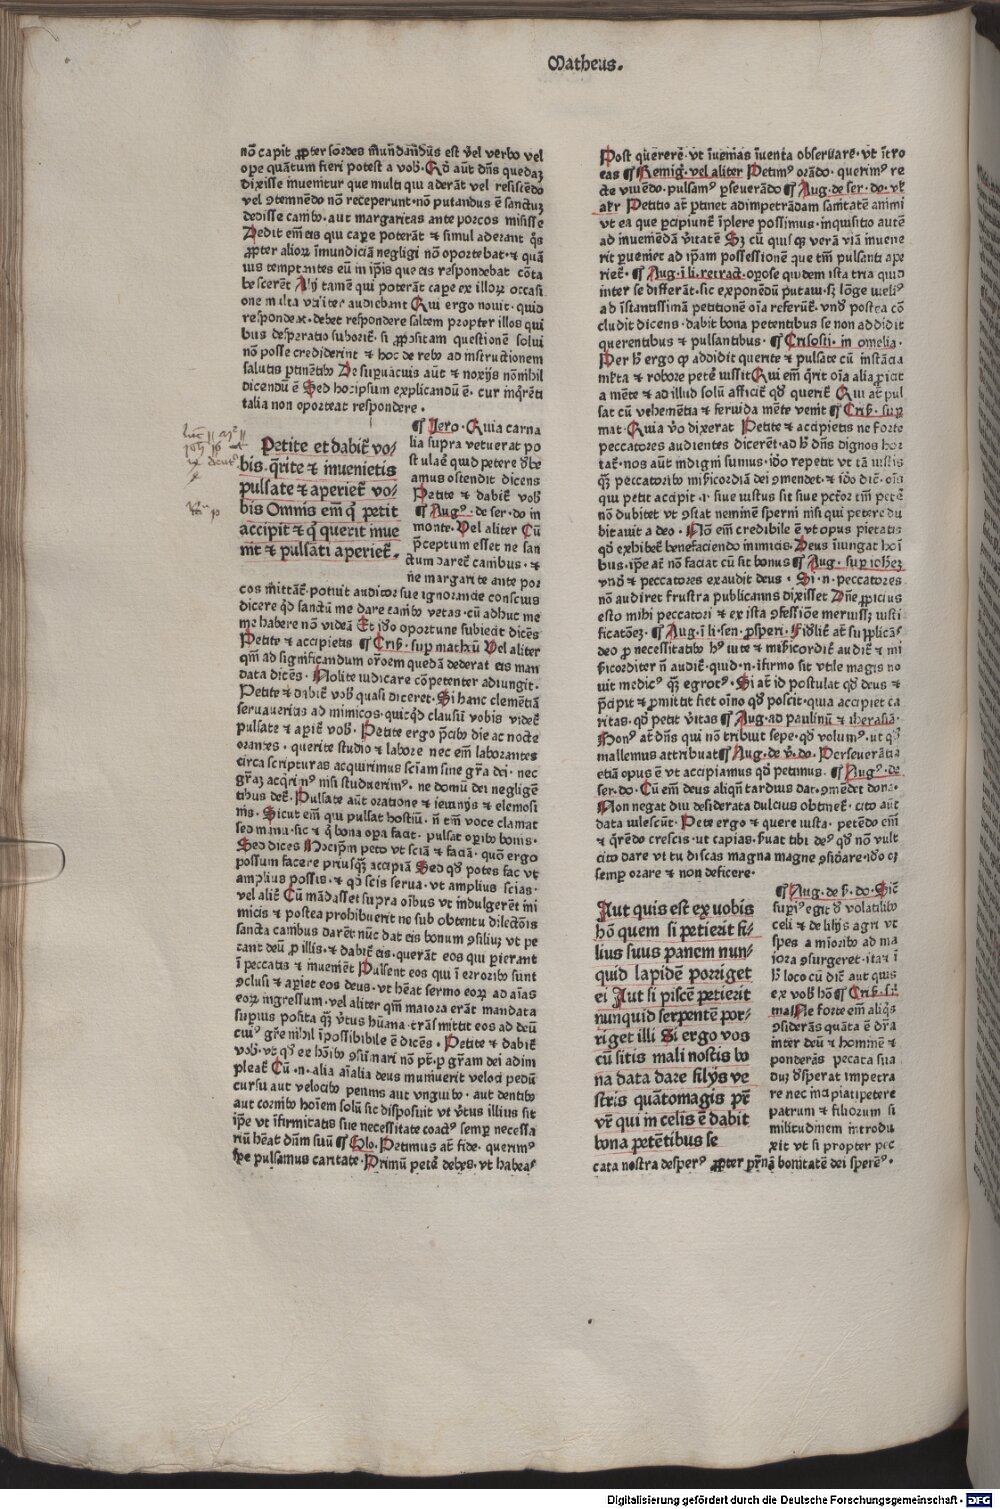 Matheus.
nõ capit ꝓpter sordes mũdandus est vel verbo vel
ope quãtum fieri potest a vob̃. Qđ aũt dñs quedaꝫ
dixisse inuenitur que multi qui aderãt vel resistẽdo
vel ꝯtemnẽdo nõ receperunt. nõ putandus ẽ sanctuꝫ
dedisse canibꝰ. aut margaritas ante porcos misisse
Dedit em̃ eis qui capere poterãt ⁊ simul aderant q̃s
ꝓpter alioꝝ imundiciã negligi nõ oportebat. ⁊ quã
uis temptantes eũ in ip̃is que eis respondebat cõta
bescerẽt Alij tamẽ qui poterãt capere ex illoꝝ occasi
one multa vtiliter audiebant Qui ergo nouit. quid
respondeat. debet respondere saltem propter illos qui
bus desperatio suborit̃. si ꝓpositam questionẽ solui
nõ posse crediderint ⁊ hoc de rebꝰ ad instructionem
salutis ꝑtinẽtibꝰ De suꝑuacuis aũt ⁊ noxijs nõ nihil
dicendũ ẽ Sed hoc ipsum explicandũ ẽ. cur inq̃renti
talia non oporteat respondere.
Petite et dabit̃ vo⸗
bis. q̃rite ⁊ inuenietis
pulsate ⁊ aperiet̃ vo⸗
bis Omnis em̃ q̃ petit
accipit ⁊ q̃ querit inue
nit ⁊ pulsati aperiet̃.
¶ Jero. Quia carna
lia supra vetuerat po
stulare quid petere debe
amus ostendit dicens
Petite ⁊ dabit̃ vob̃
¶ Augꝰ. de ser. do in
monte. Vel aliter Cũ
p̃ceptum esset ne san
ctum daret̃ canibus. ⁊
ne margarite ante por
cos mittãt̃. potuit auditor sue ignorancie conscius
dicere qđ sanctũ me dare canibꝰ vetas. cũ adhuc me
me habere nõ videã Et ido oportune subiecit dicẽs
Petite ⁊ accipietis ¶ Cris̃. suꝑ matheũ Vel aliter
qm̃ ad significandum or̃oem quedã dederat eis man
data dicẽs. Nolite iudicare cõpetenter adiungit.
Petite ⁊ dabit̃ vob̃ quasi diceret. Si hanc clementiã
seruaueritis ad inimicos. quicqđ clausũ vobis videt̃
pulsate ⁊ aperit̃ vob̃. Petite ergo p̃cibꝰ die ac nocte
orantes. querite studio ⁊ labore nec em̃ laborantes
circa scripturas acquirimus sciam̃ sine gr̃a dei. nec
gr̃aꝫ acq̃rimꝰ nisi studuerimꝰ. ne domũ dei negligẽ
tibus det̃. Pulsate aũt oratione ⁊ ieiunijs ⁊ elemosi
nis. Sicut em̃ qui pulsat hostiũ. ñ tm̃ voce clamat
sed manu. sic ⁊ q̃ bona oꝑa facit. pulsat oꝑibꝰ bonis.
Sed dices Hoc ip̃m peto vt sciã ⁊ faciã. quõ ergo
possum facere priusq̃ꝫ accipiã Sed qđ potes fac vt
amplius possis. ⁊ qđ scis serua. vt amplius scias.
vel alit̃ Cũ mãdasset supra oĩbus vt indulgerẽt ini
micis ⁊ postea prohibuerit ne sub obtentu dilectõis
sancta canibus darẽt nũc dat eis bonum ꝯsiliuꝫ vt pe
tant deũ ꝓ illis. ⁊ dabit̃ eis. querãt eos qui perierant
ĩ peccatis ⁊ inueniẽt Pulsent eos qui ĩ erroribꝰ sunt
ꝯclusi ⁊ aꝑiet eos deus. vt hẽat sermo eoꝝ ad aĩas
eoꝝ ingressum. vel aliter qm̃ maiora erãt mandata
superius posita q̃ꝫ ṽtus hũana. trãsmittit eos ad deũ
cuiꝰ gr̃e nihil ĩpossibibile ẽ dicẽs. Petite ⁊ dabit̃
vob̃. vt qđ ex hoĩbꝰ ꝯsũmari nõ pt̃. ꝑ gr̃am dei adim
pleat̃ Cũ. n. alia aĩalia deus munierit veloci pedũ
cursu aut velocibꝰ pennis aut vnguibꝰ. aut dentibꝰ
aut cornibꝰ hoĩem solũ sic disposuit vt ṽtus illius sit
ip̃e vt ĩfirmitatis sue necessitate coactꝰ semꝑ necessa
riũ hẽat dñm suũ ¶ Glo. Petimus at̃ fide. querimꝰ
spe pulsamus caritate. Primũ petẽ debes. vt habeasꝰ
Post querere. vt ĩuenias ĩuenta obseruare. vt ĩtro
eas ¶ Remig. vel aliter Petimꝰ orãdo. querimꝰ re
cte viuẽdo. pulsamꝰ ꝑseuerãdo ¶ Aug. de ser. do. vł
at̃r Petitio at̃ ꝑtinet ad impetrãdam sanitatẽ animi
vt ea que p̃cipiunt̃ ĩplere possimus. inquisitio autẽ
ad inueniẽdã ṽitatẽ Sꝫ cũ quisqꝫ verã viã inuene
rit ꝑueniet ad ip̃am possessionẽ que tm̃ pulsanti ape
riet̃. ¶ Aug. ĩ li. retract. oꝑose quidem ista tria quid
inter se differãt. sic exponẽdũ putaui. sꝫ lõge meliꝰ
ad ĩstantissimã petitionẽ oĩa referũt̃. vnđ postea cõ
cludit dicens. dabit bona petentibus se non addidit
querentibus ⁊ pulsantibus. ¶ Crisosti. in omelia.
Per h̃ ergo ꝙ addidit querite ⁊ pulsate cũ instãcia
ml̃ta ⁊ robore petẽ iussit Qui em̃ q̃rit oĩa alia ꝓicit
a mẽte ⁊ ad illud solũ afficit̃ qđ querit̃ Qui at̃ pul
sat cũ vehementia ⁊ feruida mẽte venit ¶ Cris̃. suꝑ
mat. Quia ṽo dixerat Petite ⁊ accipietis ne forte
peccatores audientes dicerẽt. ad h̃ dñs dignos hor
tat̃. nos aũt indigni sumus. ido repetit vt tã iustis
q̃ꝫ peccatoribꝰ mis̃icordiã dei ꝯmendet. ⁊ ido dic̃. oĩs
qui petit accipit. i. siue iustus sit siue pctõr tm̃ petẽ
nõ dubitet vt ꝯstat neminẽ sperni nisi qui petere du
bitauit a deo. Nõ em̃ credibile ẽ vt opus pietatis
qđ exhibet̃ benefaciendo inimicis. Deus ĩiungat hoĩ
bus. ip̃e at̃ nõ faciat cũ sit bonus ¶ Aug. suꝑ ioheꝫ
vnđ ⁊ peccatores exaudit deus. Si. n. peccatores
nõ audiret frustra publicanus dixisset Dñe ꝓpicius
esto mihi peccatori ⁊ ex ista ꝯfessiõe meruisꝫ iusti
ficatõeꝫ. ¶ Aug. ĩ li. sen. ꝓsperi. Fidelit̃ at̃ supplicãs
deo ꝓ necessitatibꝰ hꝰ vite ⁊ mis̃icordit̃ audit̃ ⁊ mi
s̃icorditer ñ audit̃. quid. n. ĩfirmo sit vtile magis no
uit medicꝰ q̃ꝫ egrotꝰ. Si at̃ id postulat qđ deus ⁊
p̃cipit ⁊ ꝓmittit fiet oĩno qđ poscit. quia accipiet ca
ritas. qđ petit ṽitas ¶ Aug. ad paulinũ ⁊ therasiã.
Bonꝰ at̃ dñs qui nõ tribuit sepe. qđ volumꝰ. ut qđ
mallemus attribuat ¶ Aug. de ṽ. do. Perseuerãtia
etiã opus ẽ vt accipiamus qđ petimus. ¶ Augꝰ. de
ser. do. Cũ em̃ deus aliqñ tardius dat. ꝯmẽdet dona.
Non negat diu desiderata dulcius obtinet̃. cito aũt
data vilescũt. Pete ergo ⁊ quere iusta. petẽdo em̃
⁊ q̃rẽdo crescis. ut capias. s̃uat tibi deꝰ qđ nõ vult
cito dare vt tu discas magna magne ꝯsiđare. ido eꝫ
semꝑ orare ⁊ non deficere.
Aut quis est ex uobis
hõ quem si petierit fi⸗
lius suus panem nun⸗
quid lapidẽ porriget
ei Aut si piscẽ petierit
nunquid serpentẽ por⸗
riget illi Si ergo vos
cũ sitis mali nostis bo
na data dare filijs ve
stris quãtomagis pr̃
vr̃ qui in celis ẽ dabit
bona petẽtibus se
¶ Aug. de ṽ. do. Sicũ
suꝑiꝰ egit đ volatilibꝰ
celi ⁊ de lilijs agri vt
spes a minoribꝰ ad ma
iora ꝯsurgeret. ita ⁊ ĩ
h̃ loco cũ dic̃ aut quis
ex vob̃ hõ ¶ Cris̃. suꝑ
mat Ne forte em̃ aliq̃s
ꝯsiderãs quãta ẽ dr̃a
inter deũ ⁊ hominẽ ⁊
ponderãs peccata sua
duꝫ đsperat impetra
re nec incipiat petere
patrum ⁊ filiorum si
militudinem introdu
xit vt si propter pec
cata nostra desperꝰ ꝓpter pr̃nã bonitatẽ dei sperẽꝰ.
Digitalisierung gefördert durch die Deutsche Forschungsgemeinschaft - DFG